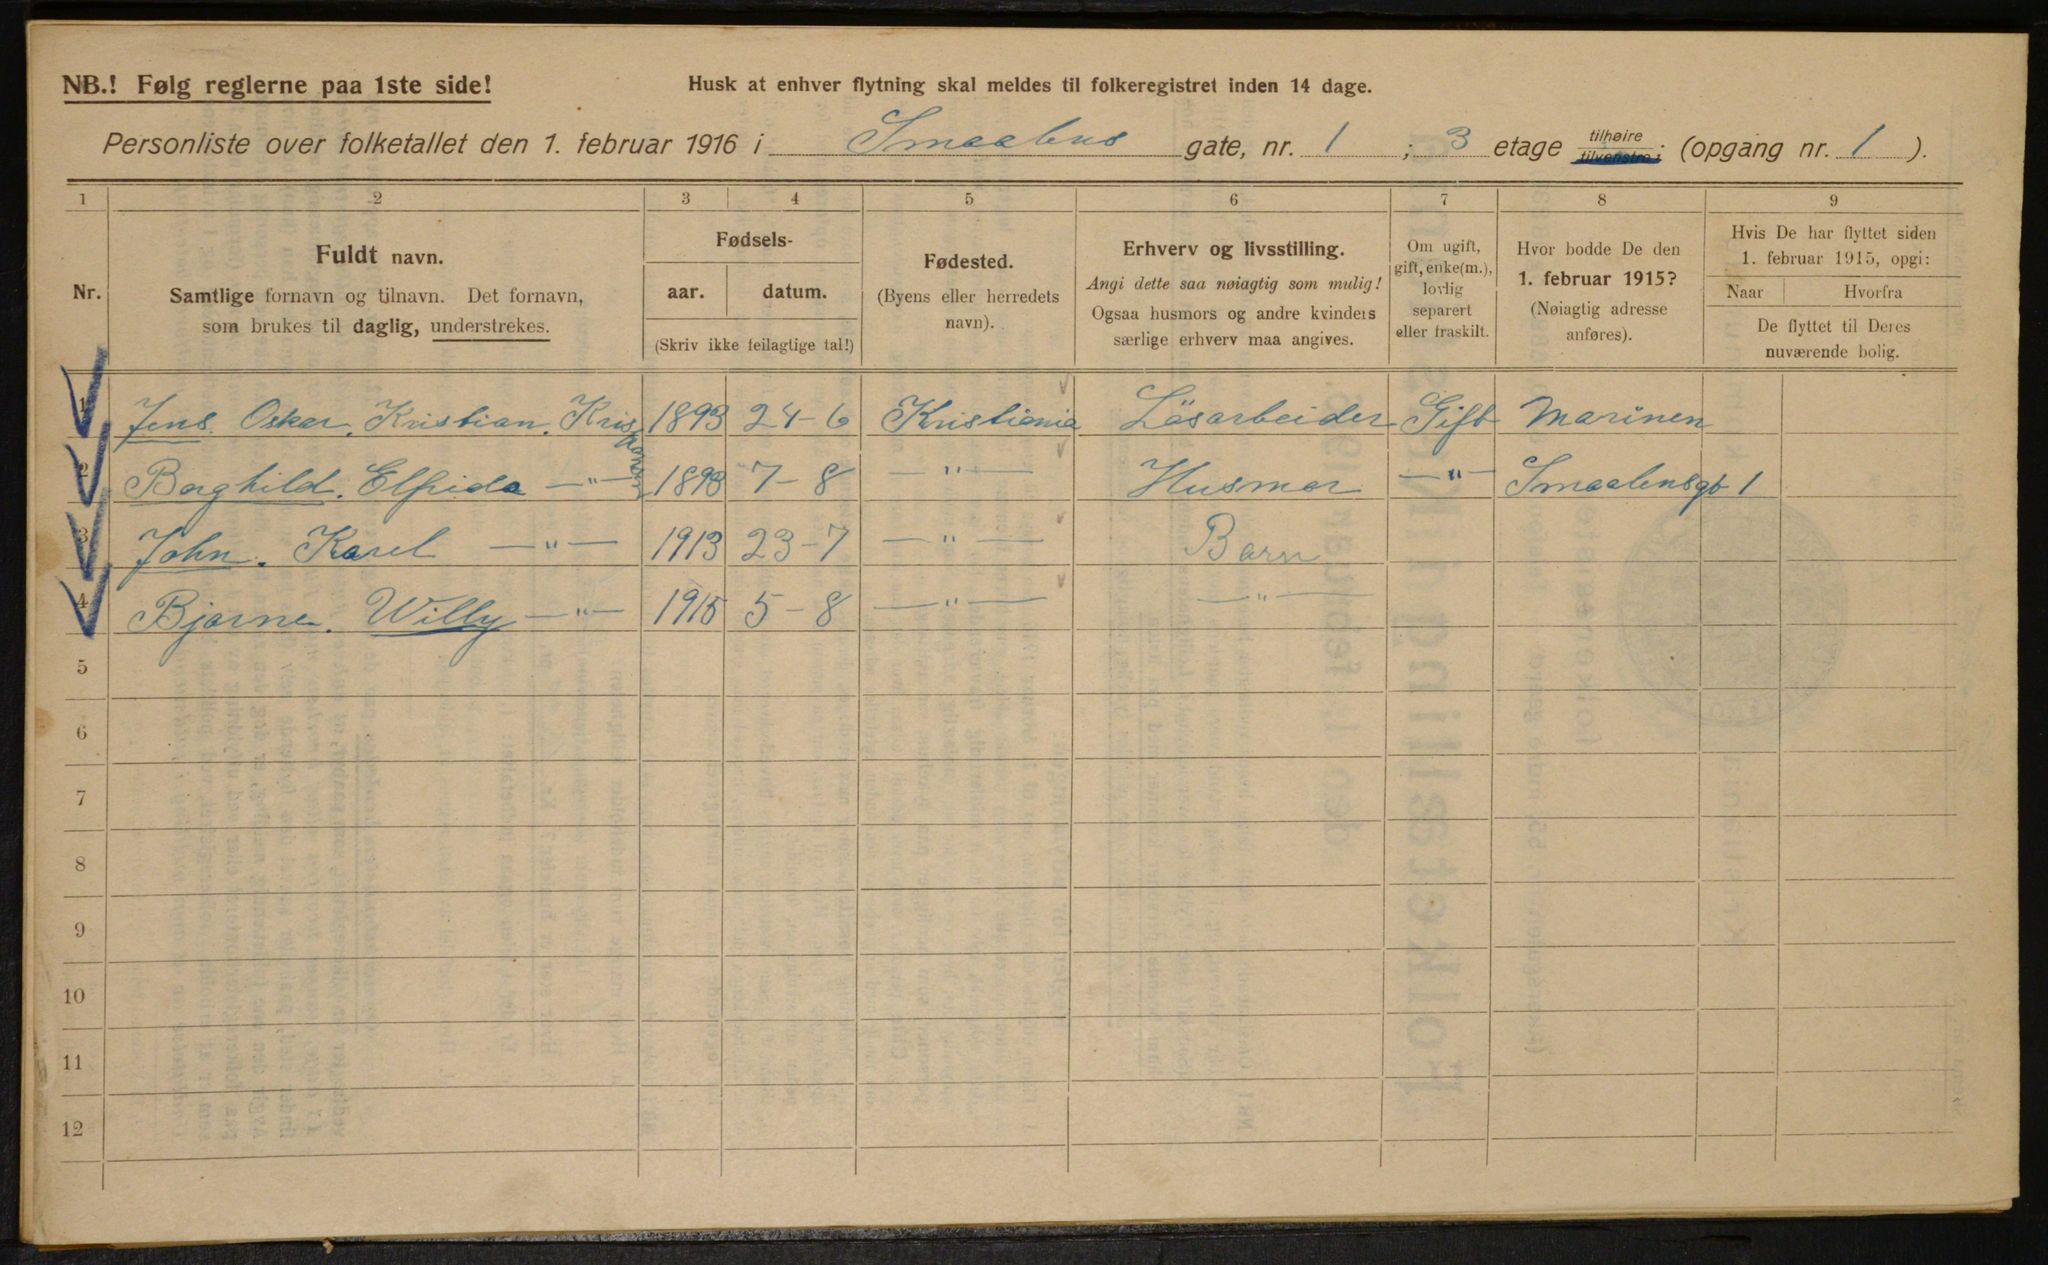 NB.! Følg reglerne paa 1ste side!
Husk at enhver flytning skal meldes til folkeregistret inden 14 dage.
Personliste over folketallet den 1. februar 1916 i Smaalens gate, nr. 1; 3 etage tilhøire tilvenstre; (opgang nr. 1).
1 2 3 4 5 6 7 8 9
Nr.
Fuldt navn.
Samtlige fornavn og tilnavn. Det fornavn,
som brukes til daglig, understrekes.
Fødsels-
aar. datum.
(Skriv ikke feilagtige tal!)
Fødested.
(Byens eller herredets
navn).
Erhverv og livsstilling.
Angi dette saa nøiagtig som mulig!
Ogsaa husmors og andre kvinders
særlige erhverv maa angives.
Om ugift,
gift, enke(m.),
lovlig
separert
eller fraskilt.
Hvor bodde De den
1. februar 1915?
(Nøiagtig adresse
anføres).
Hvis De har flyttet siden
1. februar 1915, opgi:
Naar Hvorfra
De flyttet til Deres
nuværende bolig.
1 Jens. Oskar. Kristian. Kristiansen 1893 24-6 Kristiania Løsarbeider Gift Marinen
2 Borghild. Elfrida —"— 1893 7-8 —"— Husmor —"— Smaalensgt 1
3 John. Karel —"— 1913 23-7 —"— Barn
4 Bjarne. Willy —"— 1915 5-8 —"— —"—
5
6
7
8
9
10
11
12